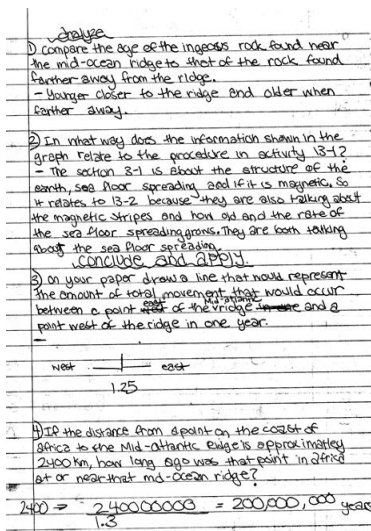 Analyze
1) Compare the age of the ingeous rock found near
the mid-ocean ridge to that of the rock found
farther away from the ridge.
- Younger closer to the ridge and older when
farther away.
2) In what way does the information shown in the
graph relate to the procedure in activity 13-1?
- The section 3-1 is about the structure of the
earth, sea floor spreading, and if it is magnetic. So
it relates to 13-2 because they are also talking about
the magnetic stripes and how old and the rate of
the sea floor spreading grows. They are both talking
about the sea floor spreading.
Conclude and apply.
3) On your paper draw a line that would represent
the amount of total movement that would occur
between a point east of the Mid-atlantic ridge and a
point west of the ridge in one year.
-
west east
1.25
4) If the distance from a point on the coast of
africa to the Mid-atlantic Ridge is approximatley
2400 km, how long ago was that point in africa
at or near that md-ocean ridge?
2400 → 240000000 = 200,000,000 years
1.3